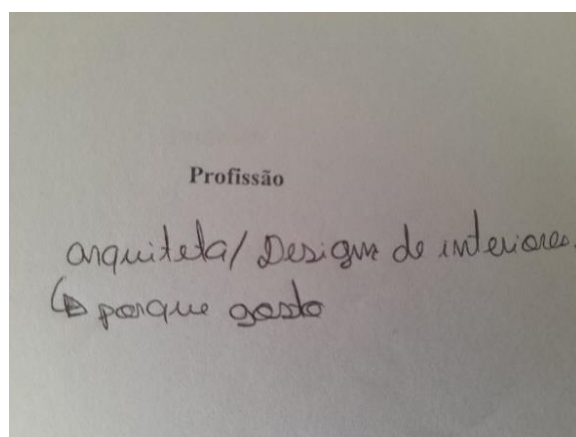 Profissão
arquiteta/ Design de interiores.
↳ porque gosto